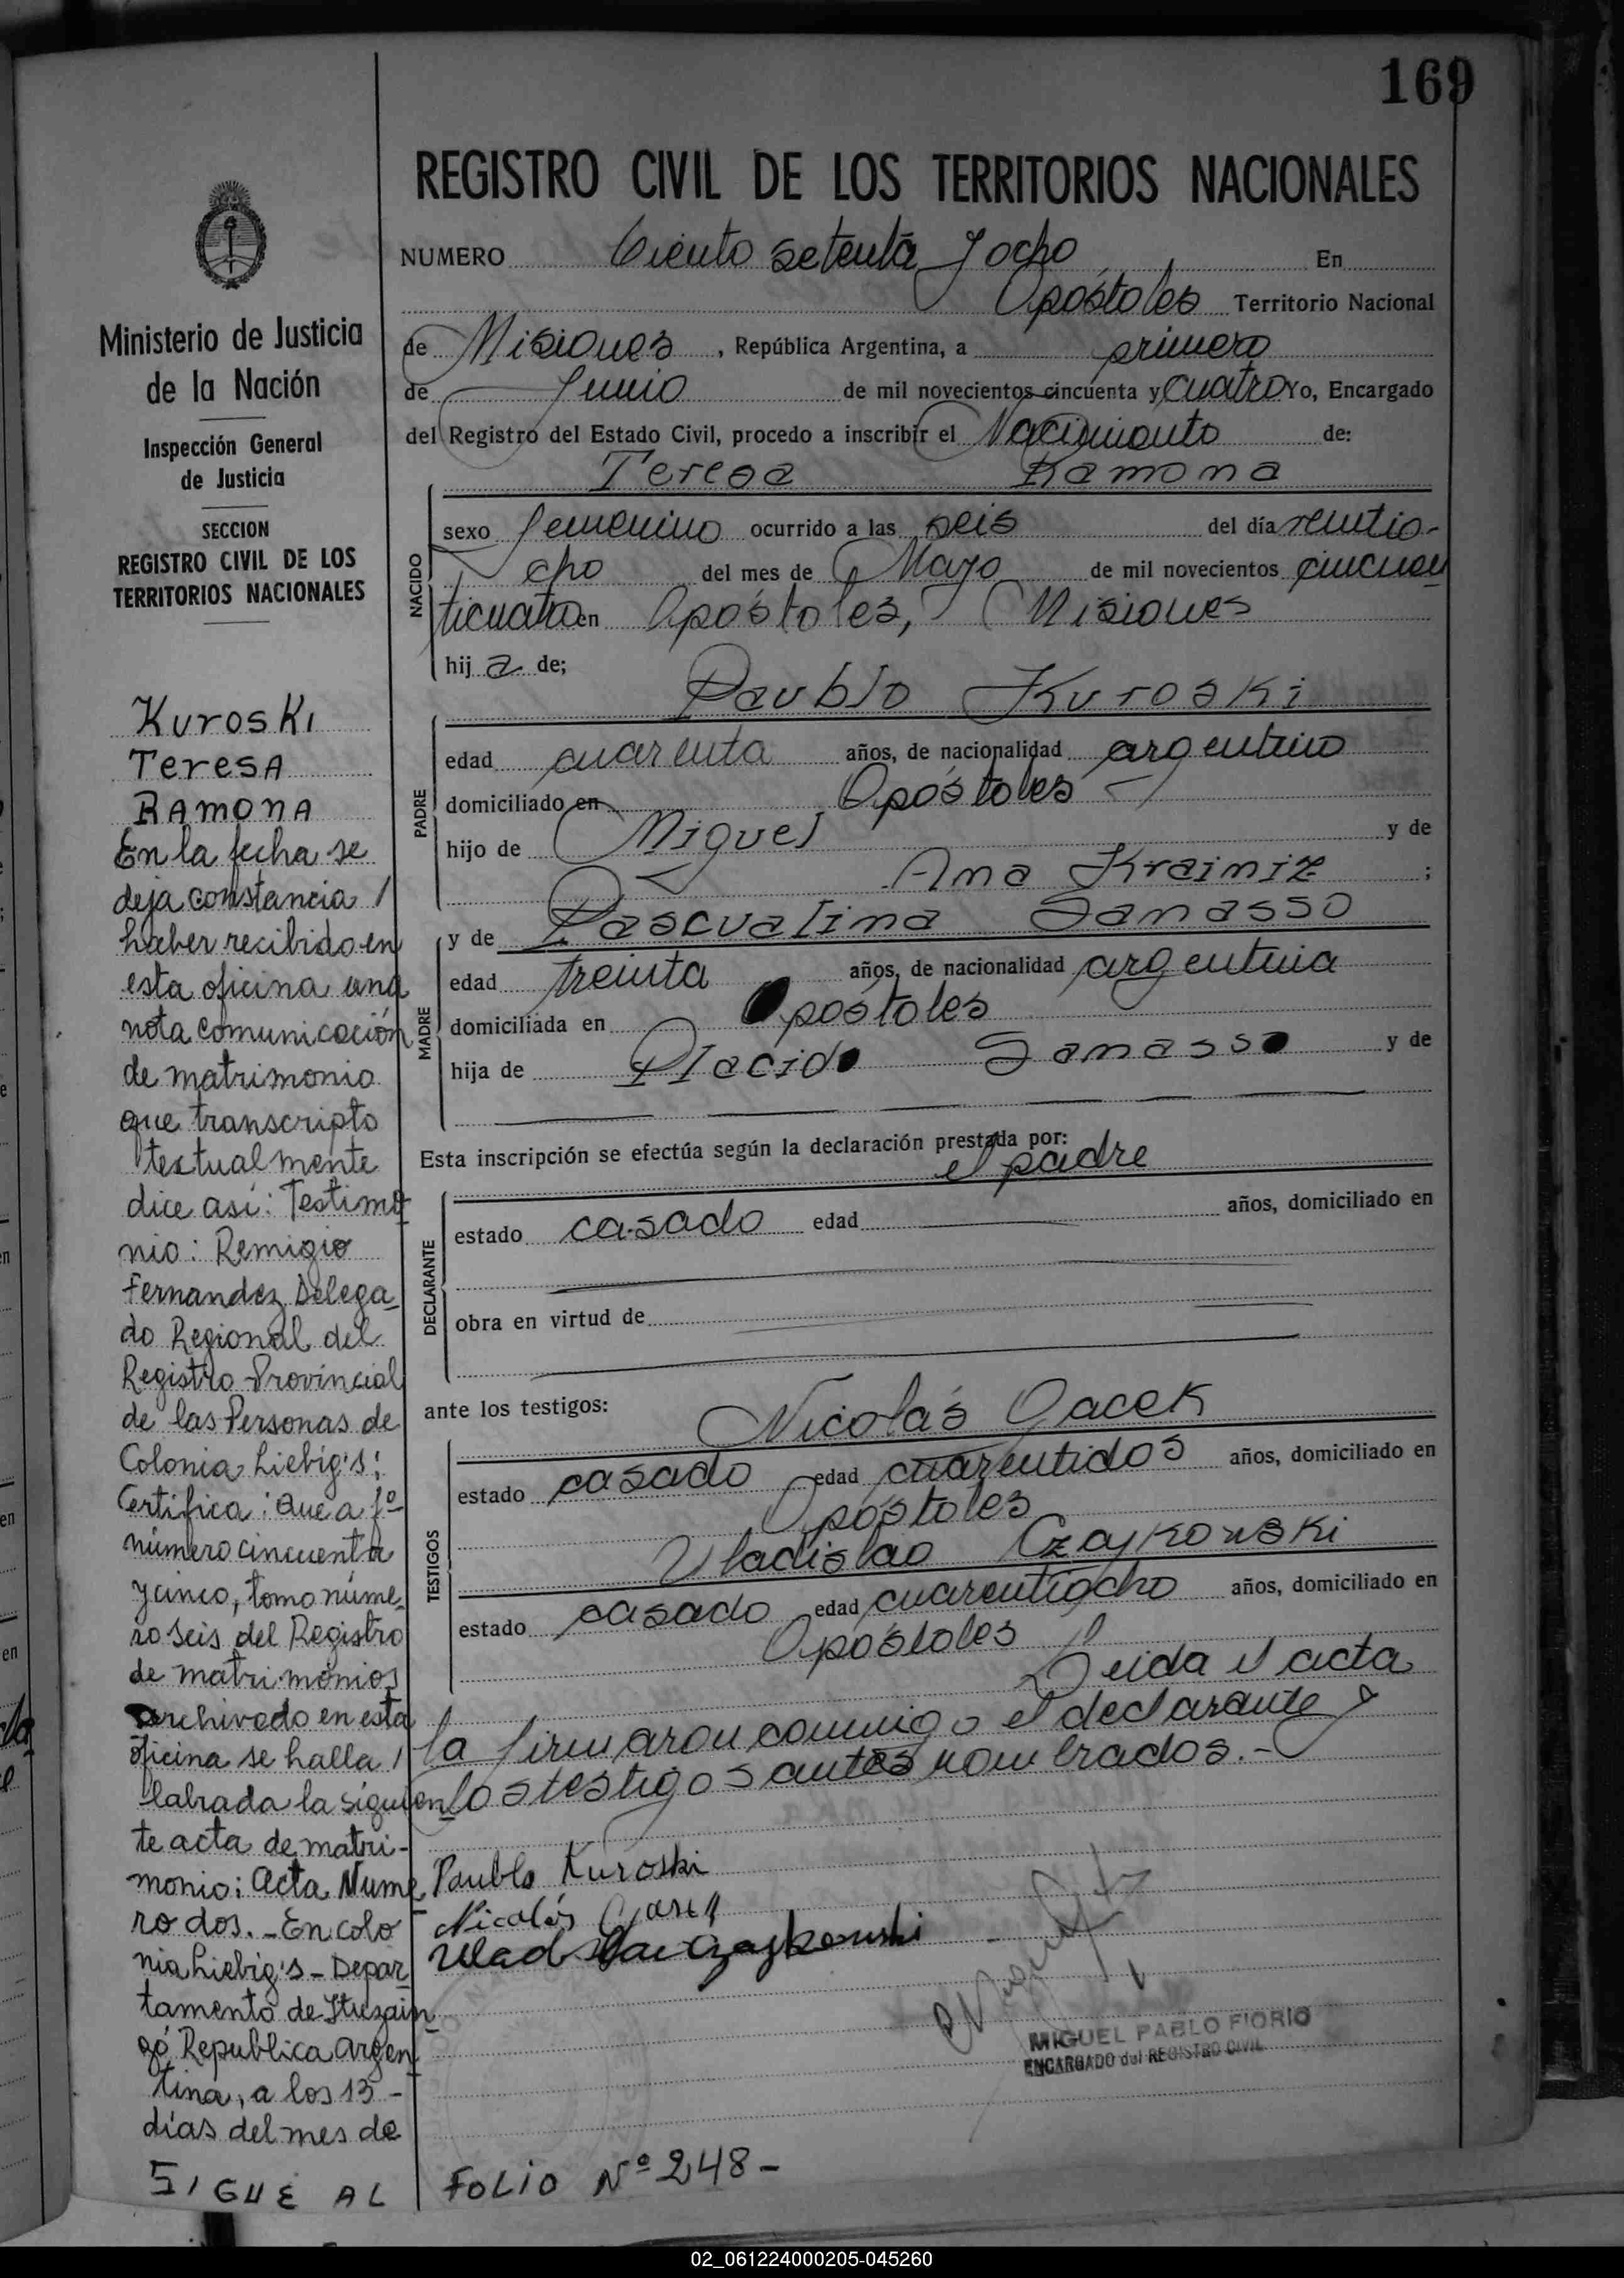 169
REGISTRO CIVIL DE LOS TERRITORIOS NACIONALES
NUMERO Ciento setenta y ocho En
Apóstoles Territorio Nacional
de Misiones, República Argentina, a primero
de Junio de mil novecientos cincuenta y cuatro Yo, Encargado
del Registro del Estado Civil, procedo a inscribir el Nacimiento de:
Teresa Ramona
NACIDO
sexo femenino ocurrido a las seis del día veintio-
cho del mes de Mayo de mil novecientos cincuen
ticuatro en Apóstoles, Misiones
hij a de;
Paublo Kuroski
PADRE
edad cuarenta años, de nacionalidad argentino
domiciliado en Apóstoles
hijo de Miguel y de
Ana Kraimiz ;
y de Pascualina Samasso
MADRE
edad treinta años, de nacionalidad argentina
domiciliada en Apóstoles
hija de Placido Samasso y de
Esta inscripción se efectúa según la declaración prestada por:
el padre
DECLARANTE
estado casado edad años, domiciliado en
obra en virtud de
ante los testigos:
Nicolás Gacek
TESTIGOS
estado casado edad cuarentidos años, domiciliado en
Apóstoles
Uladislao Czaykowski
estado casado edad cuarentiocho años, domiciliado en
Apóstoles Leida el acta
la firmaron conmigo el declarante y
los testigos antes nombrados.-
Paublo Kuroski
Nicolás
MIGUEL PABLO FIORIO
ENCARGADO del REGISTRO CIVIL
Ministerio de Justicia
de la Nación
Inspección General
de Justicia
SECCION
REGISTRO CIVIL DE LOS
TERRITORIOS NACIONALES
Kuroski
Teresa
Ramona
En la fecha se
deja constancia /
haber recibido en
esta oficina una
nota comunicación
de matrimonio
que transcripto
textualmente
dice así: Testimo
nio: Remigio
Fernandez Delega-
do Regional del
Registro Provincial
de las Personas de
Colonia Liebig's:
Certifica: Que a fº
número cincuenta
y cinco, tomo núme-
ro seis del Registro
de matrimonios
archivado en esta
oficina se halla /
labrada la siguien
te acta de matri-
monio: Acta Nume
ro dos. - En colo
nia Liebig's - Depar
tamento de Ituzain
gó Republica Argen
tina, a los 13 -
días del mes de
SIGUE AL FOLIO Nº 248 -
02_061224000205-045260